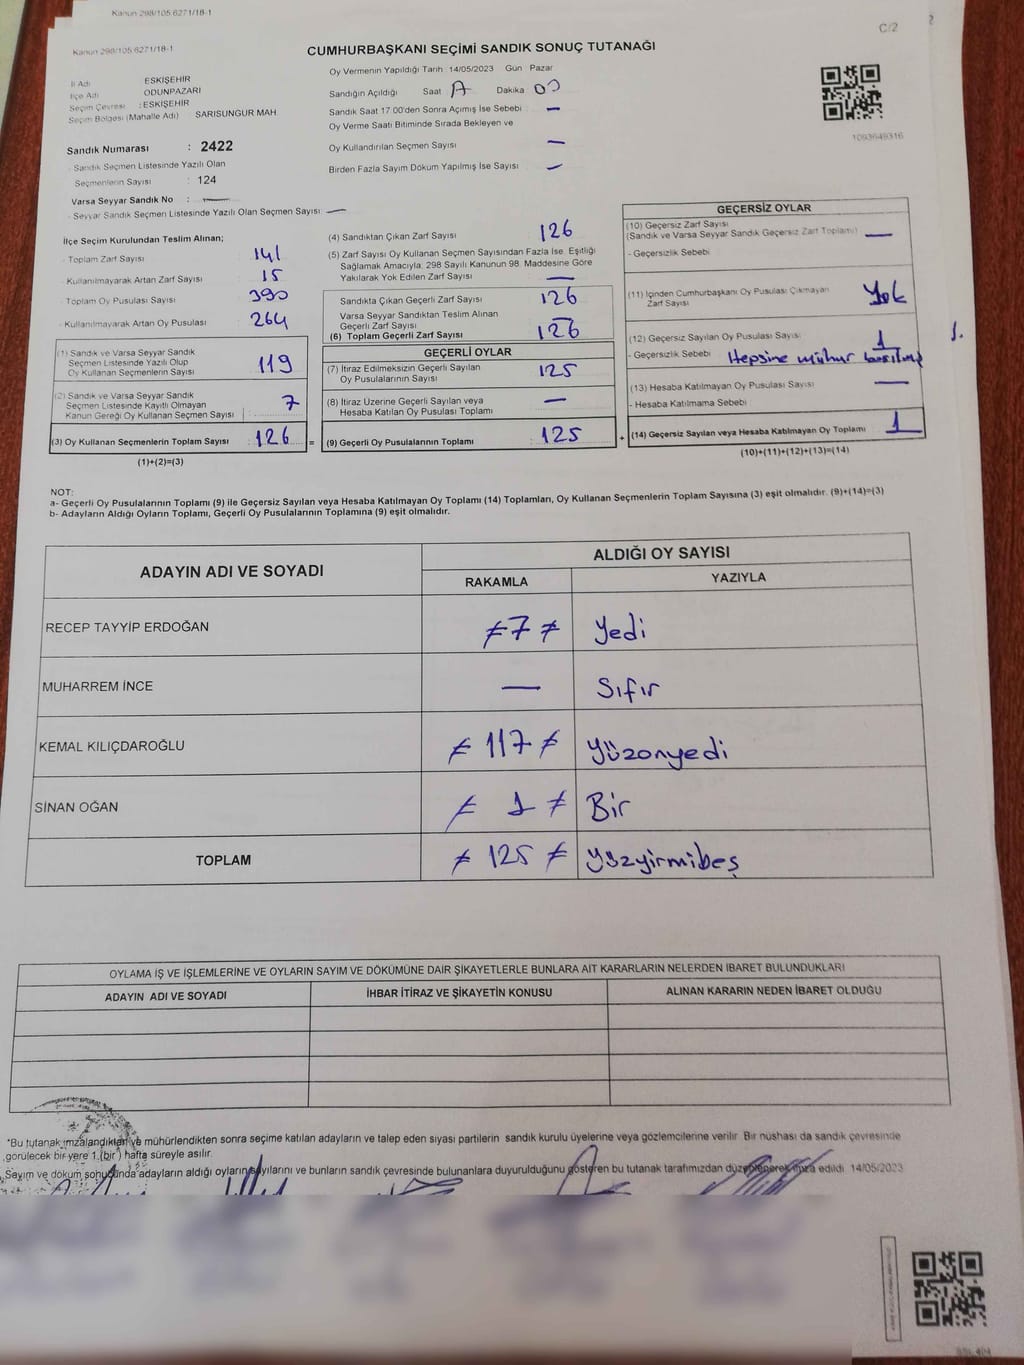 Kanun 298/105.6271/18-1
Kanun 298/105.6271/18-1
C/2
CUMHURBAŞKANI SEÇİMİ SANDIK SONUÇ TUTANAĞI
İl Adı ESKİŞEHİR
İlçe Adı ODUNPAZARI
Seçim Çevresi : ESKİŞEHİR
Seçim Bölgesi (Mahalle Adı) SARISUNGUR MAH.
Oy Vermenin Yapıldığı Tarih 14/05/2023 Gün Pazar
Sandığın Açıldığı Saat Dakika
Sandık Saat 17.00'den Sonra Açımış İse Sebebi —
Oy Verme Saati Bitiminde Sırada Bekleyen ve
Oy Kullandırılan Seçmen Sayısı —
Birden Fazla Sayım Döküm Yapılmış İse Sayısı —
1093649316
Sandık Numarası : 2422
- Sandık Seçmen Listesinde Yazılı Olan
Seçmenlerin Sayısı : 124
Varsa Seyyar Sandık No : —
- Seyyar Sandık Seçmen Listesinde Yazılı Olan Seçmen Sayısı: —
İlçe Seçim Kurulundan Teslim Alınan;
- Toplam Zarf Sayısı 141
- Kullanılmayarak Artan Zarf Sayısı 15
- Toplam Oy Pusulası Sayısı 390
- Kullanılmayarak Artan Oy Pusulası 264
(1) Sandık ve Varsa Seyyar Sandık
Seçmen Listesinde Yazılı Olup
Oy Kullanan Seçmenlerin Sayısı 119
(2) Sandık ve Varsa Seyyar Sandık
Seçmen Listesinde Kayıtlı Olmayan
Kanun Gereği Oy Kullanan Seçmen Sayısı 7
(3) Oy Kullanan Seçmenlerin Toplam Sayısı 126 =
(1)+(2)=(3)
(4) Sandıktan Çıkan Zarf Sayısı 126
(5) Zarf Sayısı Oy Kullanan Seçmen Sayısından Fazla İse, Eşitliği
Sağlamak Amacıyla, 298 Sayılı Kanunun 98. Maddesine Göre
Yakılarak Yok Edilen Zarf Sayısı —
Sandıkta Çıkan Geçerli Zarf Sayısı 126
Varsa Seyyar Sandıktan Teslim Alınan
Geçerli Zarf Sayısı
(6) Toplam Geçerli Zarf Sayısı 126
GEÇERLİ OYLAR
(7) İtiraz Edilmeksizin Geçerli Sayılan
Oy Pusulalarının Sayısı 125
(8) İtiraz Üzerine Geçerli Sayılan veya
Hesaba Katılan Oy Pusulası Toplamı —
(9) Geçerli Oy Pusulalarının Toplamı 125 +
GEÇERSİZ OYLAR
(10) Geçersiz Zarf Sayısı
(Sandık ve Varsa Seyyar Sandık Geçersiz Zarf Toplamı) —
- Geçersizlik Sebebi
(11) İçinden Cumhurbaşkanı Oy Pusulası Çıkmayan
Zarf Sayısı Yok
(12) Geçersiz Sayılan Oy Pusulası Sayısı 1
- Geçersizlik Sebebi Hepsine mühür basılmış
(13) Hesaba Katılmayan Oy Pusulası Sayısı —
- Hesaba Katılmama Sebebi
(14) Geçersiz Sayılan veya Hesaba Katılmayan Oy Toplamı 1
(10)+(11)+(12)+(13)=(14)
NOT:
a- Geçerli Oy Pusulalarının Toplamı (9) ile Geçersiz Sayılan veya Hesaba Katılmayan Oy Toplamı (14) Toplamları, Oy Kullanan Seçmenlerin Toplam Sayısına (3) eşit olmalıdır. (9)+(14)=(3)
b- Adayların Aldığı Oyların Toplamı, Geçerli Oy Pusulalarının Toplamına (9) eşit olmalıdır.
ADAYIN ADI VE SOYADI ALDIĞI OY SAYISI
RAKAMLA YAZIYLA
RECEP TAYYİP ERDOĞAN ≠ 7 ≠ Yedi
MUHARREM İNCE — Sıfır
KEMAL KILIÇDAROĞLU ≠ 117 ≠ Yüzonyedi
SİNAN OĞAN ≠ 1 ≠ Bir
TOPLAM ≠ 125 ≠ Yüzyirmibeş
OYLAMA İŞ VE İŞLEMLERİNE VE OYLARIN SAYIM VE DÖKÜMÜNE DAİR ŞİKAYETLERLE BUNLARA AİT KARARLARIN NELERDEN İBARET BULUNDUKLARI
ADAYIN ADI VE SOYADI İHBAR İTİRAZ VE ŞİKAYETİN KONUSU ALINAN KARARIN NEDEN İBARET OLDUĞU
*Bu tutanak imzalandıktan ve mühürlendikten sonra seçime katılan adayların ve talep eden siyasi partilerin sandık kurulu üyelerine veya gözlemcilerine verilir. Bir nüshası da sandık çevresinde
görülecek bir yere 1 (bir) hafta süreyle asılır.
Sayım ve döküm sonucunda adayların aldığı oyların sayılarını ve bunların sandık çevresinde bulunanlara duyurulduğunu gösteren bu tutanak tarafımızdan düzenlenerek imza edildi. 14/05/2023